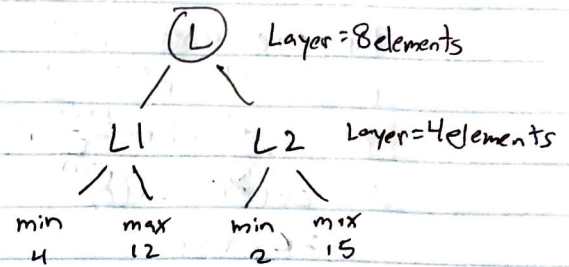 L Layer=8elements
L1 L2 Layer=4elements
min max min max
4 12 2 15